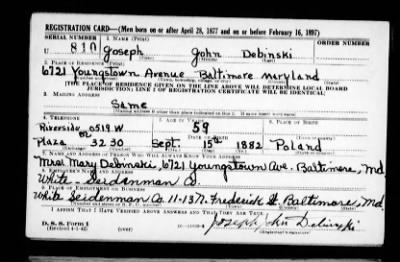 REGISTRATION CARD—(Men born on or after April 28, 1877 and on or before February 16, 1897)
SERIAL NUMBER 1. NAME (Print) ORDER NUMBER
U 810 Joseph John Debinski
2. PLACE OF RESIDENCE (Print)
6721 Youngstown Avenue Baltimore Maryland
[THE PLACE OF RESIDENCE GIVEN ON THE LINE ABOVE WILL DETERMINE LOCAL BOARD
JURISDICTION; LINE 2 OF REGISTRATION CERTIFICATE WILL BE IDENTICAL]
3. MAILING ADDRESS
Same
4. TELEPHONE 5. AGE IN YEARS 6. PLACE OF BIRTH
Riverside 0519 W 59
or DATE OF BIRTH
Plaza 3230 Sept. 15th 1882 Poland
7. NAME AND ADDRESS OF PERSON WHO WILL ALWAYS KNOW YOUR ADDRESS
Mrs. Mary Debinski, 6721 Youngstown Ave. Baltimore, Md.
8. EMPLOYER'S NAME AND ADDRESS
White - Seidenman Co.
9. PLACE OF EMPLOYMENT OR BUSINESS
White Seidenman Co. Frederick St. Baltimore, Md.
I AFFIRM THAT I HAVE VERIFIED ABOVE ANSWERS AND THAT THEY ARE TRUE.
D. S. S. Form 1
(Revised 4-1-42) (over) Joseph John Debinski